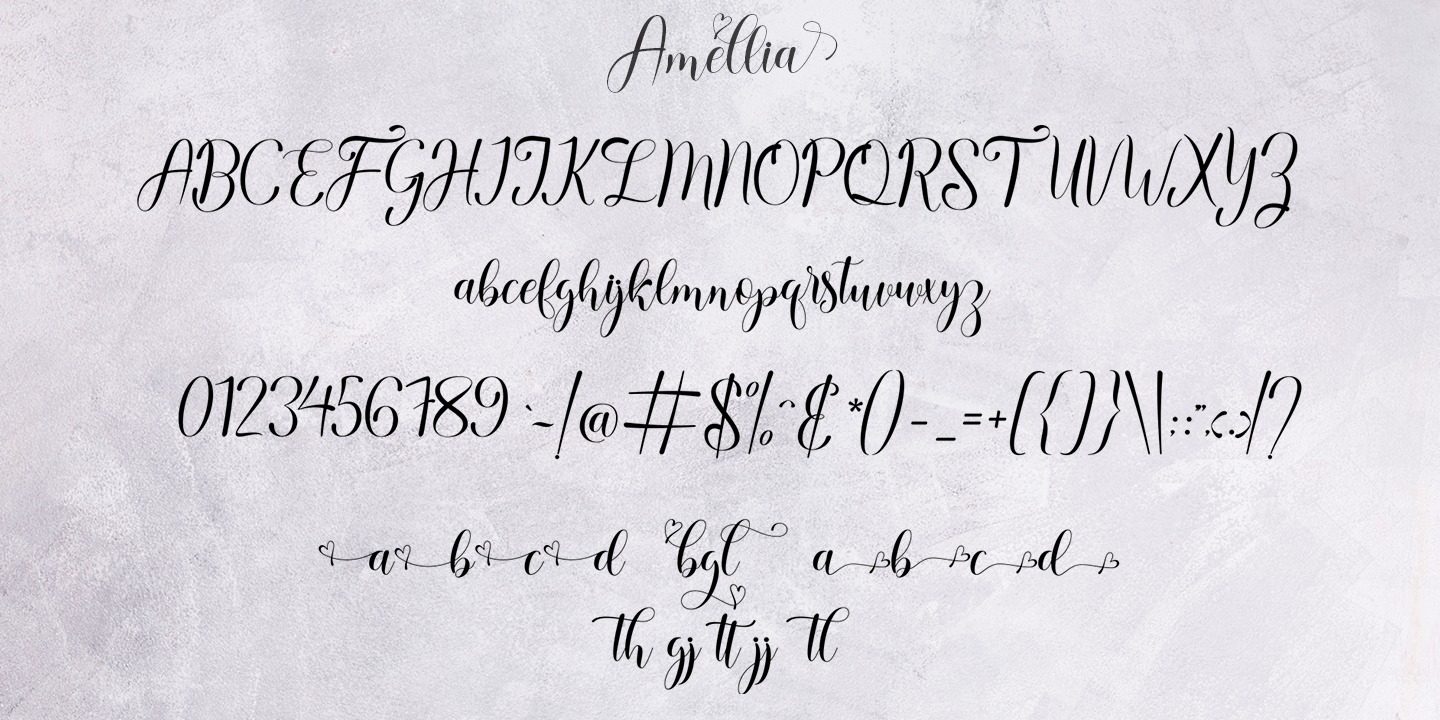 Amellia
ABCEFGHIJKLMNOPQRSTUVWXYZ
abcefghijklmnopqrstuvwxyz
0123456789 `~!@#$%^&*()-_=+({)}\|;:",<.>/?
a b c d bgl a b c d
th gj tt jj tl